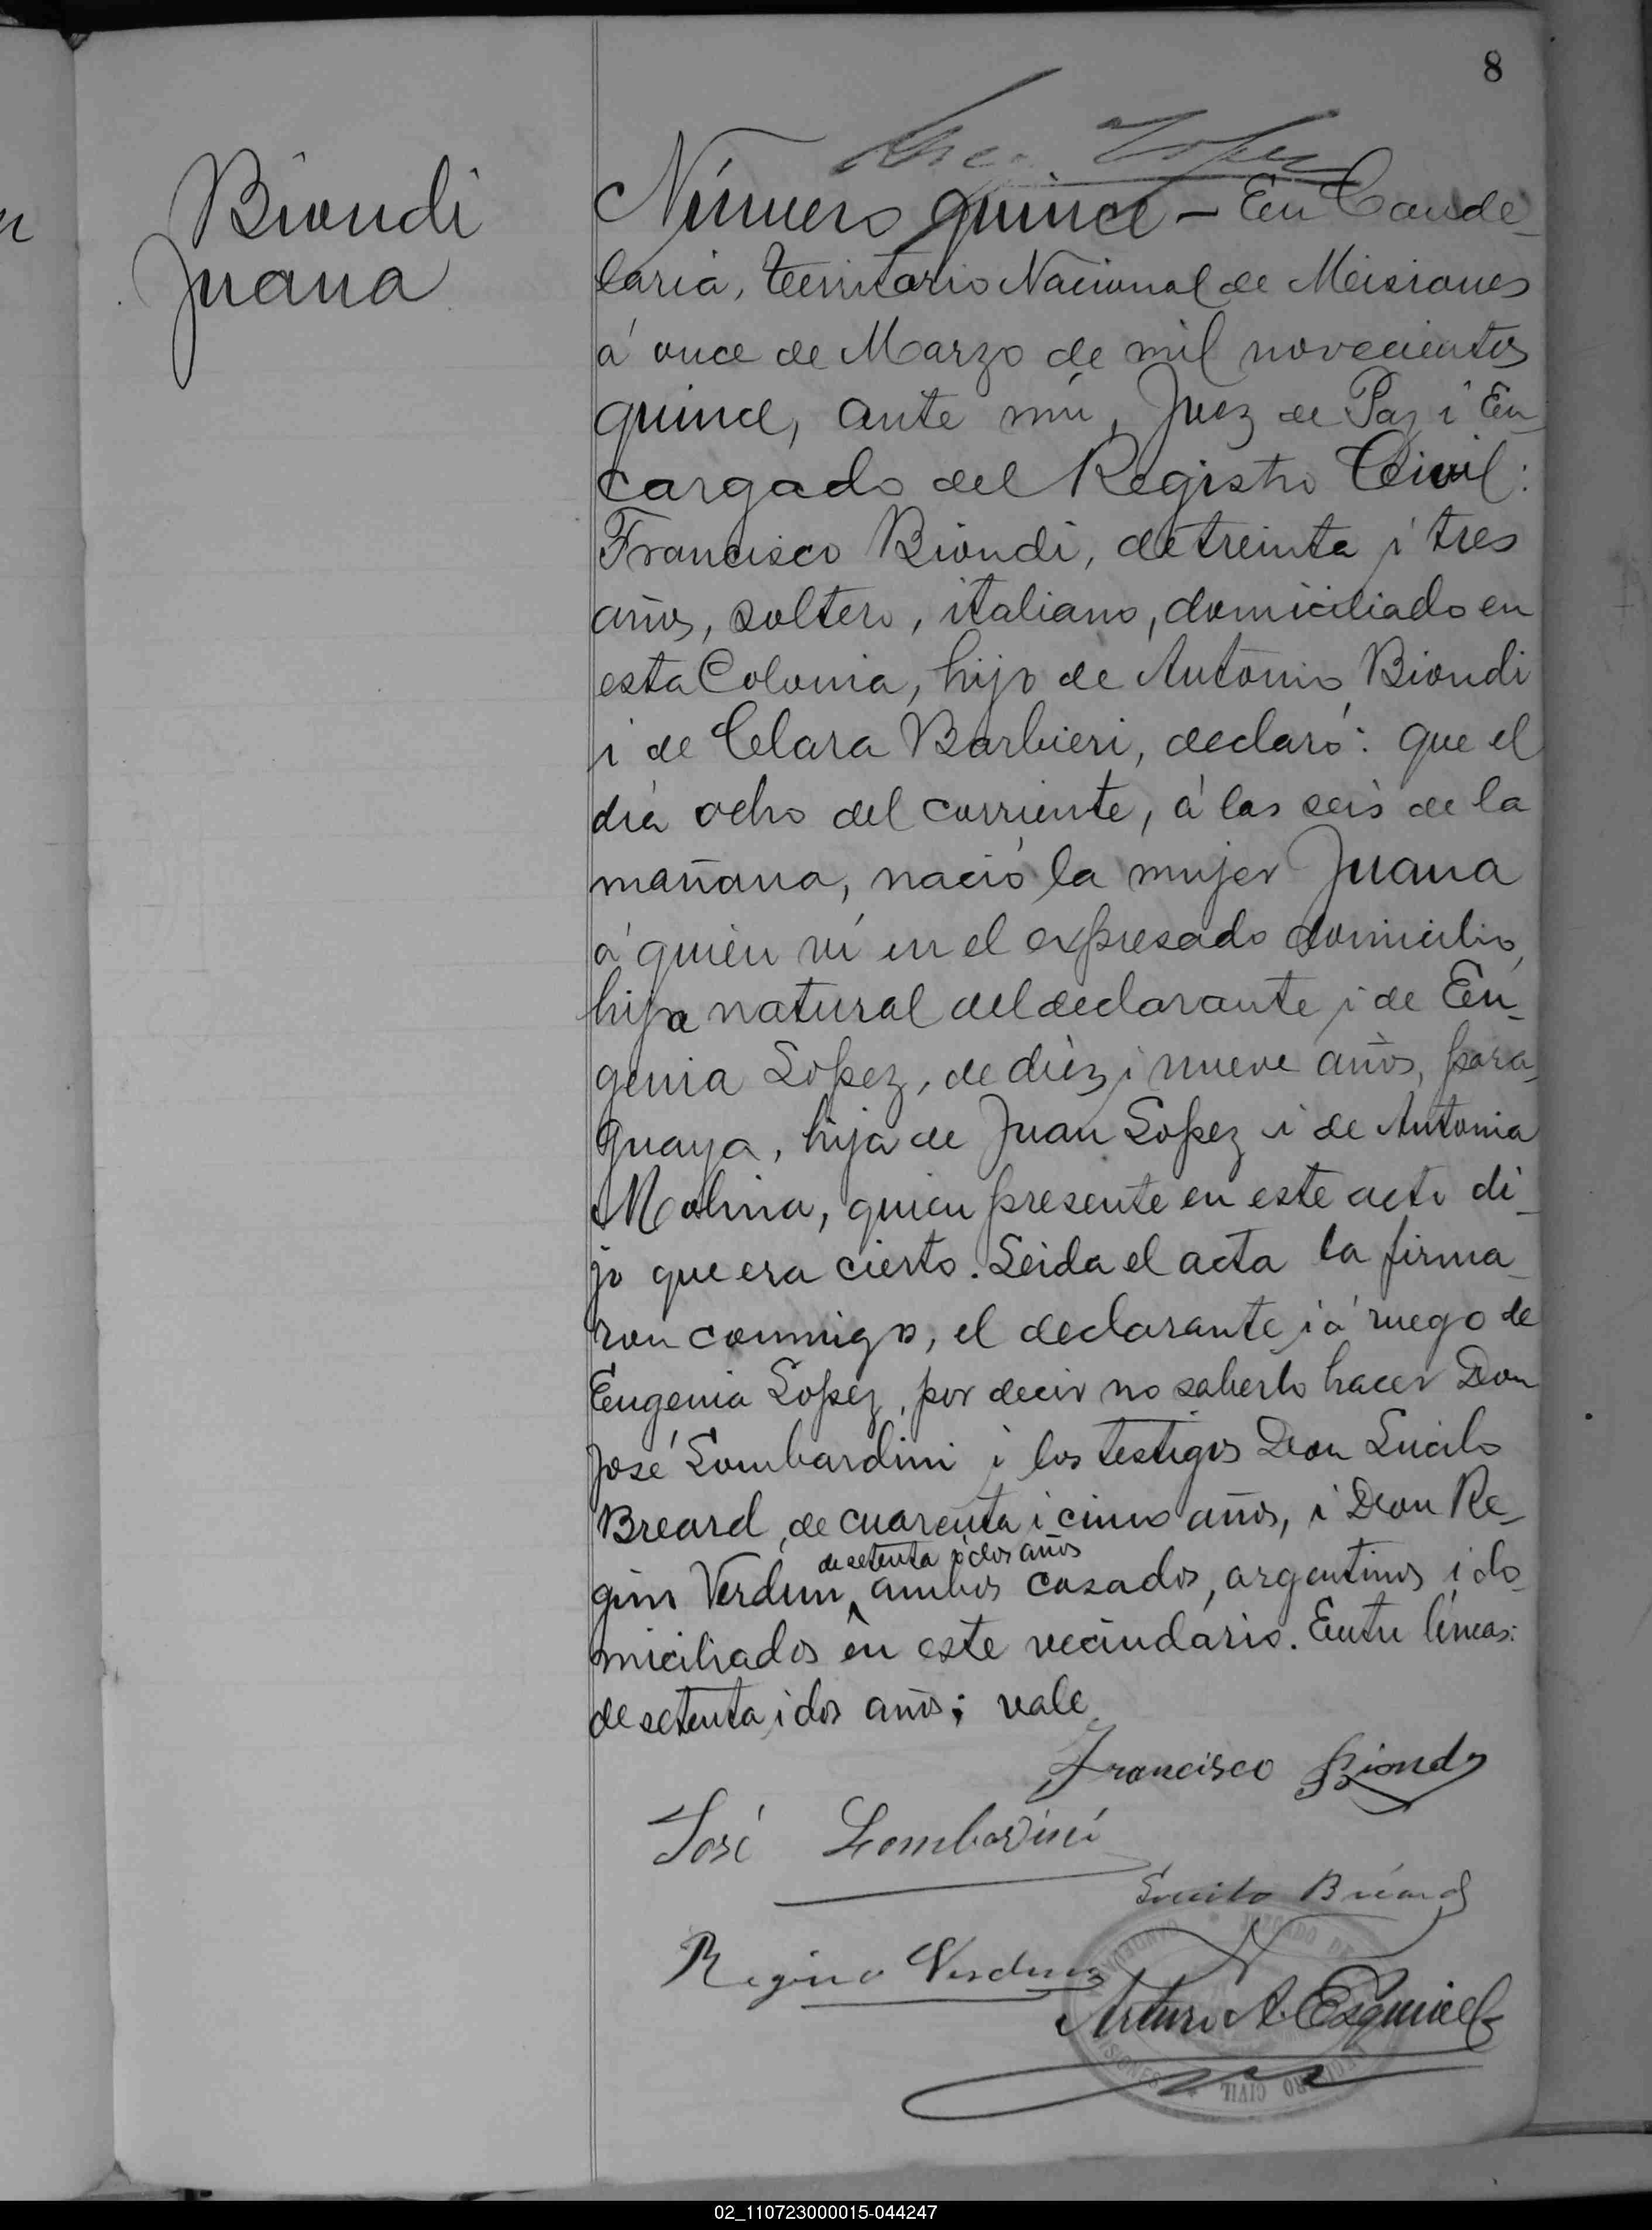 8
Biondi
Juana
Número quince – En Cande-
laria, territorio Nacional de Misiones
á once de Marzo de mil novecientos
quince, ante mi, Juez de Paz i En-
cargado del Registro Civil:
Francisco Biondi, de treinta i tres
años, soltero, italiano, domiciliado en
esta Colonia, hijo de Antonio Biondi
i de Clara Barbieri, declaró: que el
día ocho del corriente, á las seis de la
mañana, nació la mujer Juana
á quien ví en el expresado domicilio,
hija natural del declarante i de Eu-
genia Lopez, de diez i nueve años, para-
guaya, hija de Juan Lopez i de Antonia
Molina, quien presente en este acto di-
jo que era cierto. Leida el acta la firma-
ron conmigo, el declarante i á ruego de
Eugenia Lopez, por decir no saberlo hacer Don
José Lombardini i los testigos Don Lucilo
Breard, de cuarenta i cinco años, i Don Re-
de setenta i dos años
gino Verdun, ambos casados, argentinos i do-
miciliados en este vecindario. Entre líneas:
de setenta i dos años; vale
Francisco Biondi
José Lombardini
Lucilo Bréard
Regino Verdun
Arturo A. Esquivel
JUZGADO DE
CIVIL
MISIONES
02_110723000015-044247